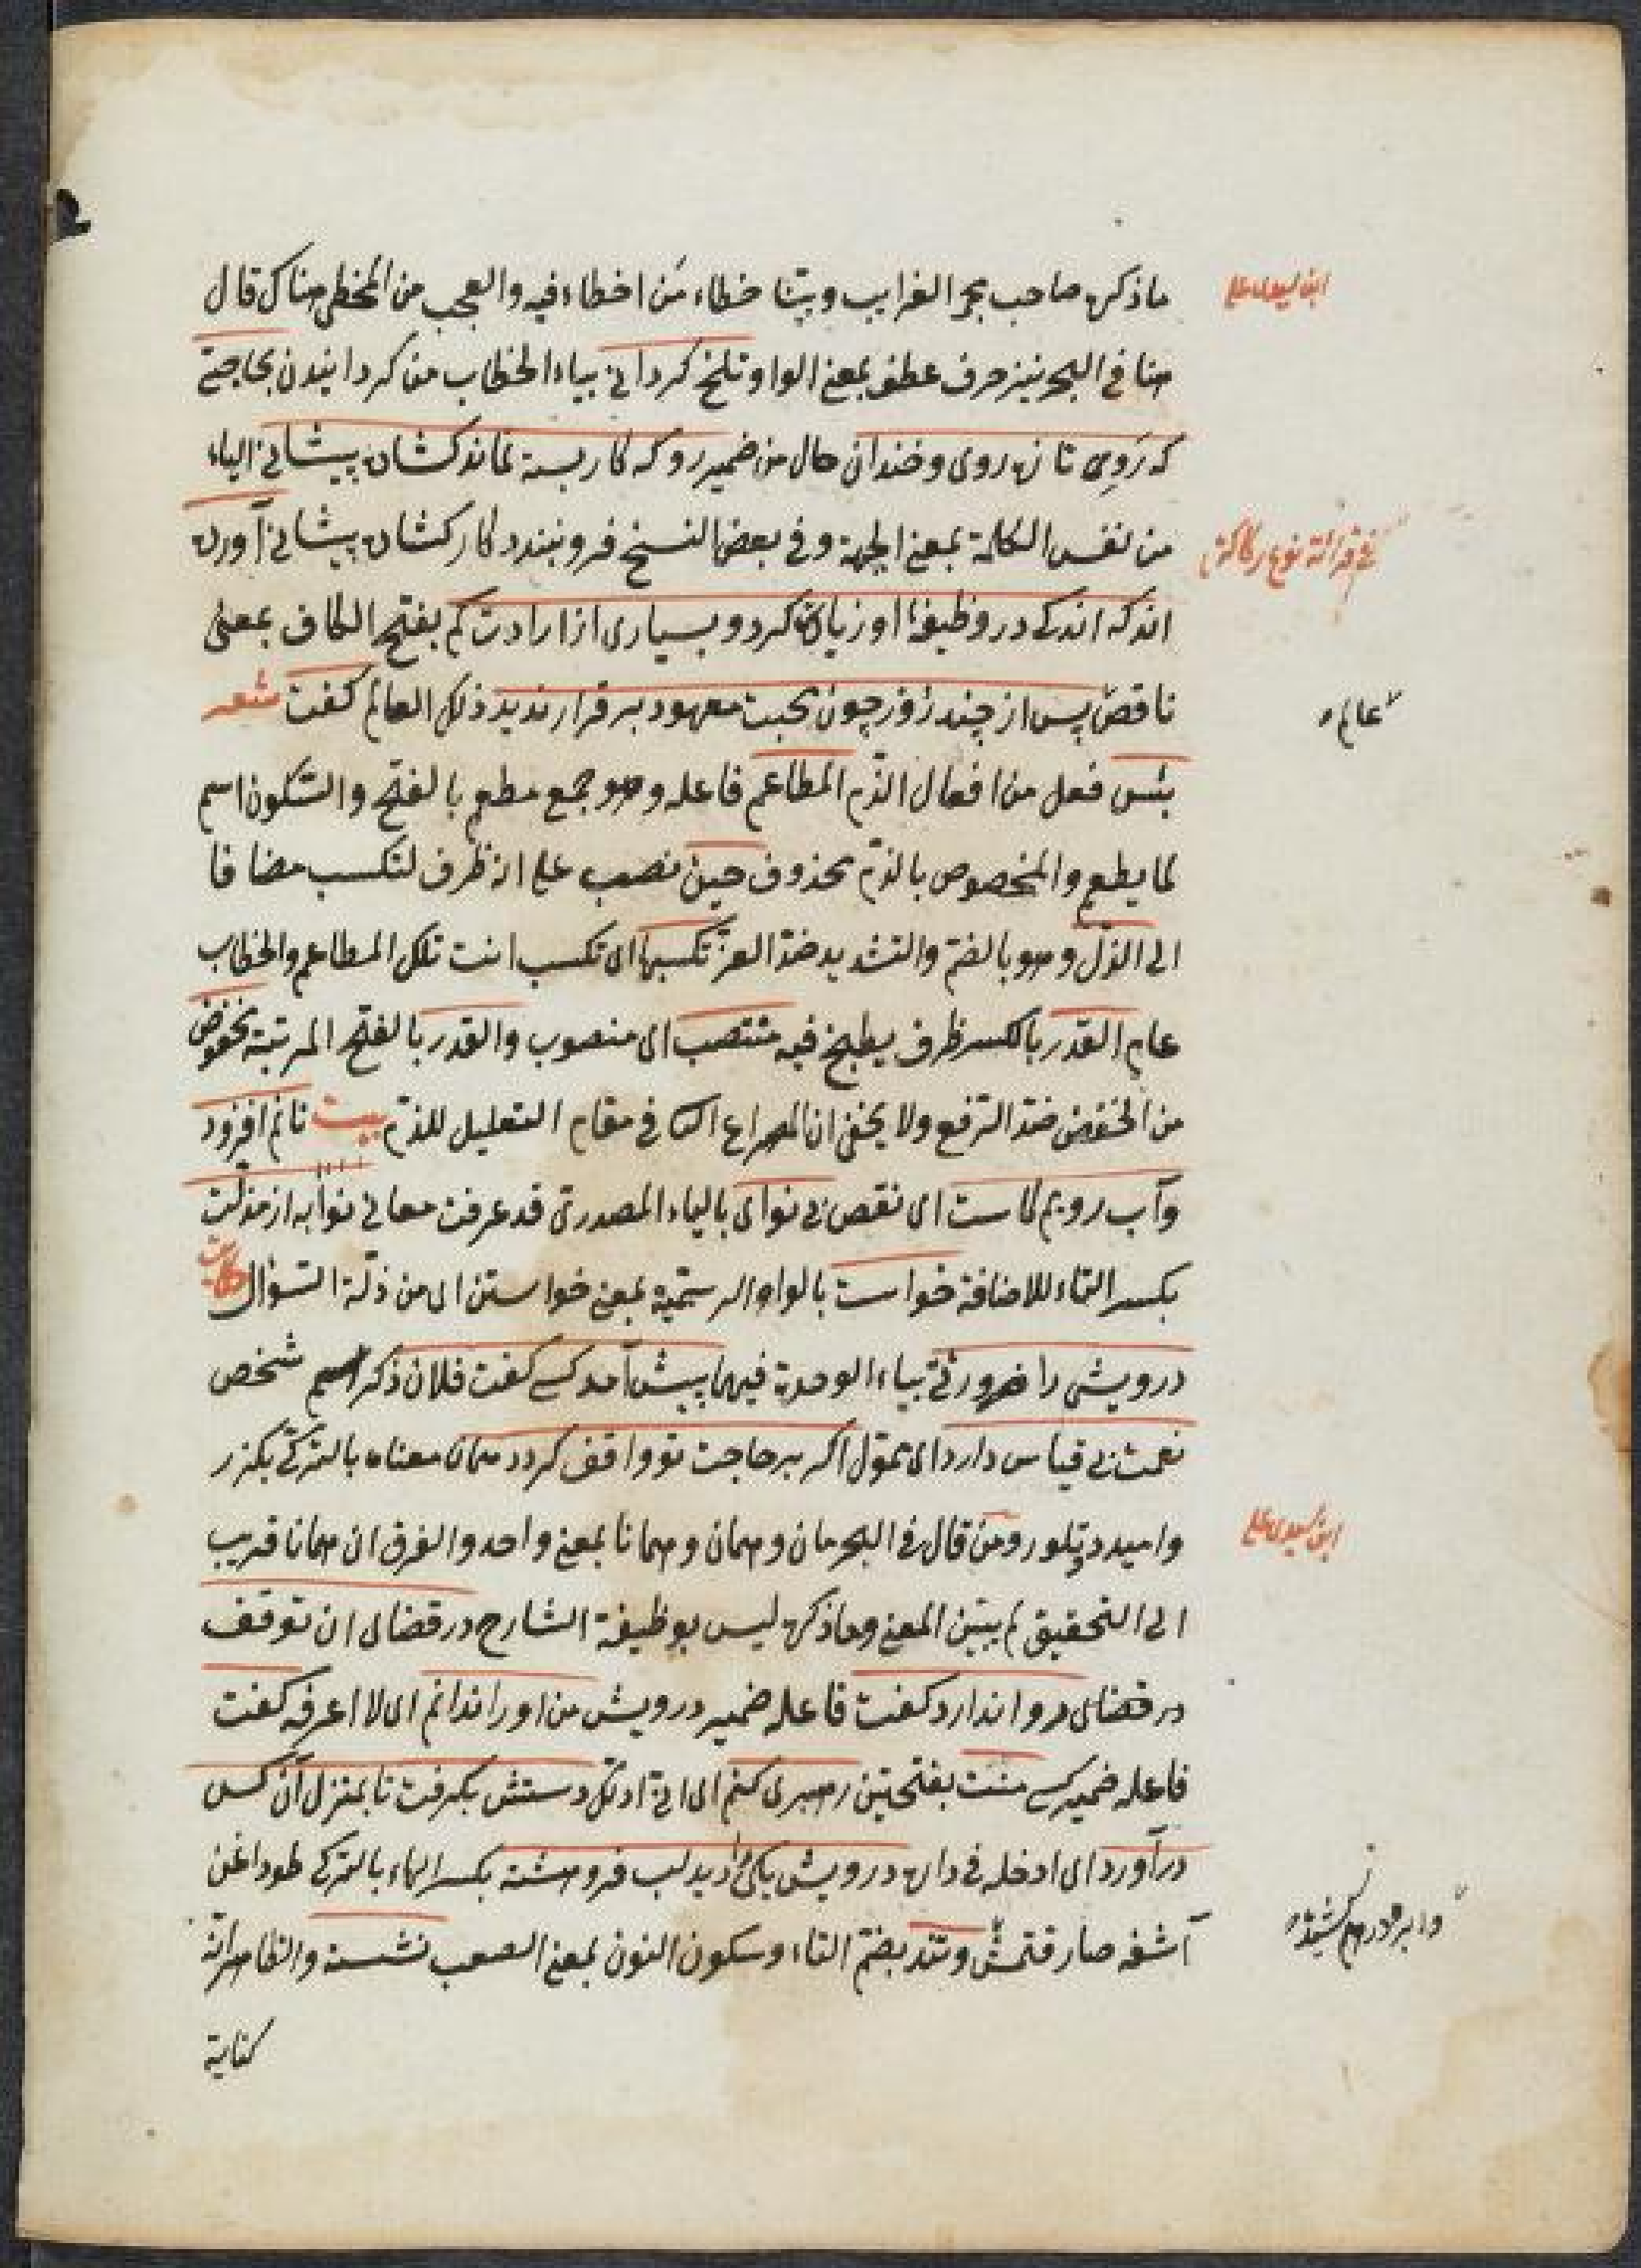 ماذكره صاحب بحر الغرايب وبيّنا خطاء مَن اخطاء فيه والعجب من المخطى هناك قال
ابن سيدى على
هنا فى البحر نيز حرف عطف بمعنى الواو تلخ كردانى بياء الخطاب من كردانيدن بحاجتى
كه رَوِى تازه روى وخندان حال من ضمير رو كه كار بسته نماند كشاده پيشانى الياء
من نفس الكلمة بمعنى الجبهة وفى بعض النسخ فرو نبندد كار كشاده پيشانى آورده
اند كه اندكى در وظيفۀ او زيادة كرد وبسيارى از ارادت كم بفتح الكاف بمعنى
ناقص پس از چند روز چون محبت معهود برقرار نديد ذلك العالم كفت شعر
عالم
بئس فعل من افعال الذّم المطاعم فاعله وهو جمع مطعم بالفتح والسّكون اسم
لما يطعم والمخصوص بالذّم محذوف حين نصب على انه ظرف لتكسب مضافا
الى الذلّ وهو بالضمّ والتشديد ضدّ العزّ تكسبها اى تكسب انت تلك المطاعم والخطاب
عام القدر بالكسر ظرف يطبخ فيه منتصب اى منصوب والقدر بالفتح المرتبة مخفوض
من الخفض ضدّ الرّفع ولا يخفى ان المصراع الثا فى مقام التعليل للذمّ بيت نانم افزود
وآب رويم كاست اى نقص بى نواى بالياء المصدرى قد عرفت معانى نوا به از مذلّت
بكسر التاء للاضافة خواست بالواو الرسميّة بمعنى خواستن اى من ذلّة السّؤال حكايت
درويشى را ضرورتى بياء الوحدة فيهما پيش آمد كسى كفت فلان ذكر اسم شخص
نعمت بى قياس دارد اى تموّل اكر بر حاجت تو واقف كردد همان معناه بالتركى بكزر
واميددوتلور ومن قال فى البحر مان وهمان وهمانا بمعنى واحد والفرق ان همانا قريب
ابن سيدى على
الى التحقيق لم يبيّن المعنى وماذكره ليس بوظيفة الشارح در قضاى ان توقف
در قضاى روا ندارد كفت فاعله ضمير درويش من او را ندانم اى لا اعرفه كفت
فاعله ضمير كسى منّت بفتحتين رهبرى كنم اى انى ادلّك دستش بكرفت تا بمنزل آن كس
درآورد اى ادخله فى داره درويش يكى را ديد لب فروهشته بكسر الهاء بالتركى طوداغن
آشفه صارقتمش وتند بضمّ التاء وسكون النون بمعنى الصعب نشسته والظاهر انّه
كناية